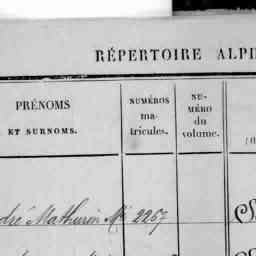 RÉPERTOIRE ALP
PRÉNOMS
ET SURNOMS.
NUMÉROS
ma-
tricules.
NU-
MÉRO
du
volume.
dré Mathurin Mie 2267